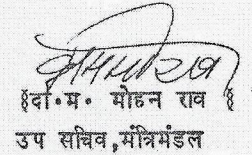 §दा॰म॰ मोहन राव§
उप सचिव,मंत्रिमंडल